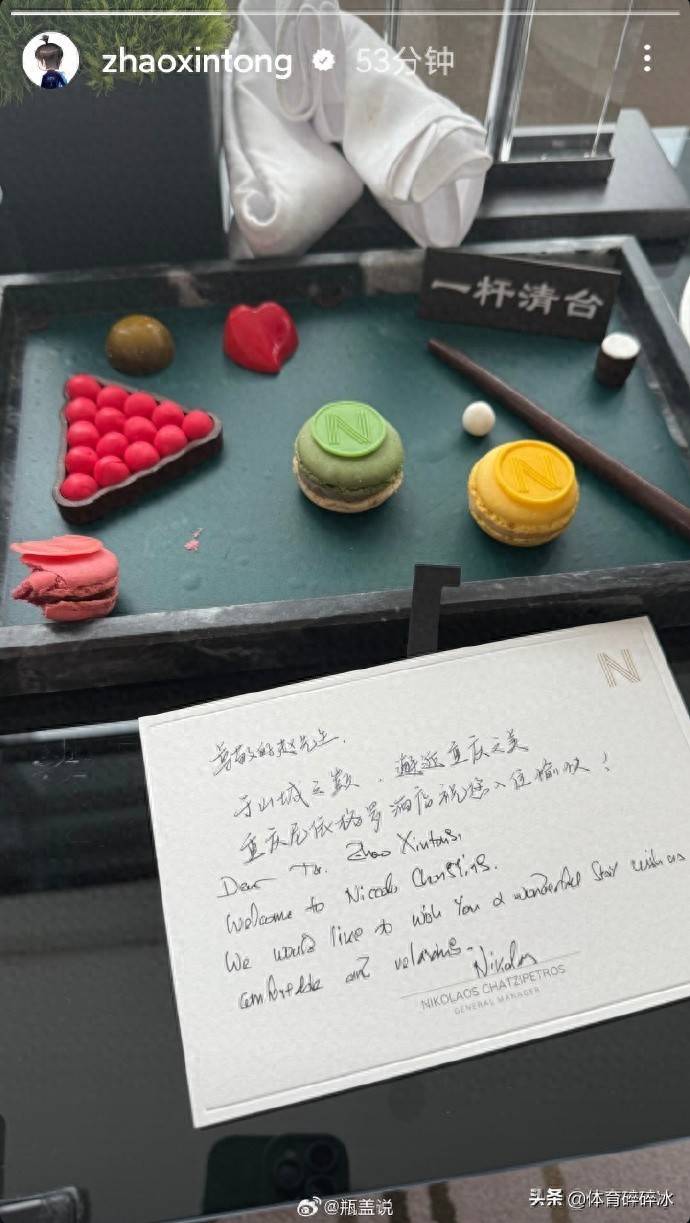 zhaoxintong 53分钟
一杆清台
N
N
N
尊敬的赵先生,
于山城之巅,邂逅重庆之美
重庆尼依格罗酒店祝您入住愉快!
Dear Mr. Zhao Xintong,
Welcome to Niccolo Chongqing.
We would like to wish you a wonderful stay with us
comfortable and relaxing.
Nikolaos
NIKOLAOS CHATZIPETROS
GENERAL MANAGER
@瓶盖说
头条 @体育碎碎冰